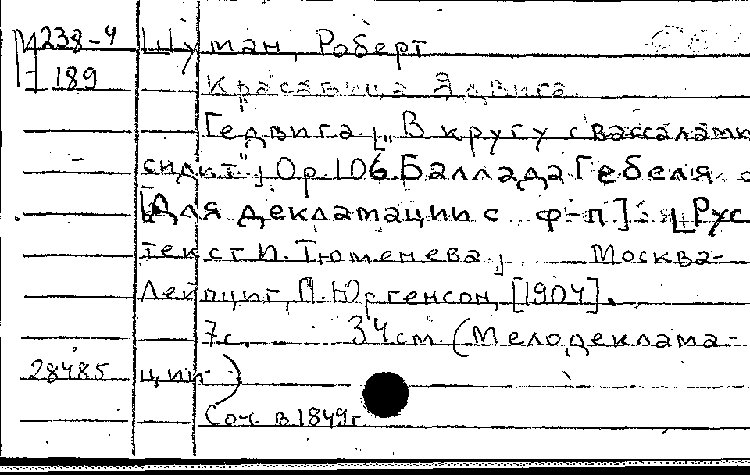 М 238-4 Шуман, Роберт
I 189 Красавица Ядвига
Гедвига „В кругу с вассалами
сидит" Ор. 106. Баллада Гебеля
[Для декламации с ф-п]. Рус
текст И. Тюменева, Москва-
Лейпциг, П. Юргенсон, [1904].
7с. 34см (Мелодеклама-
28485 ции)
Соч. в 1849г